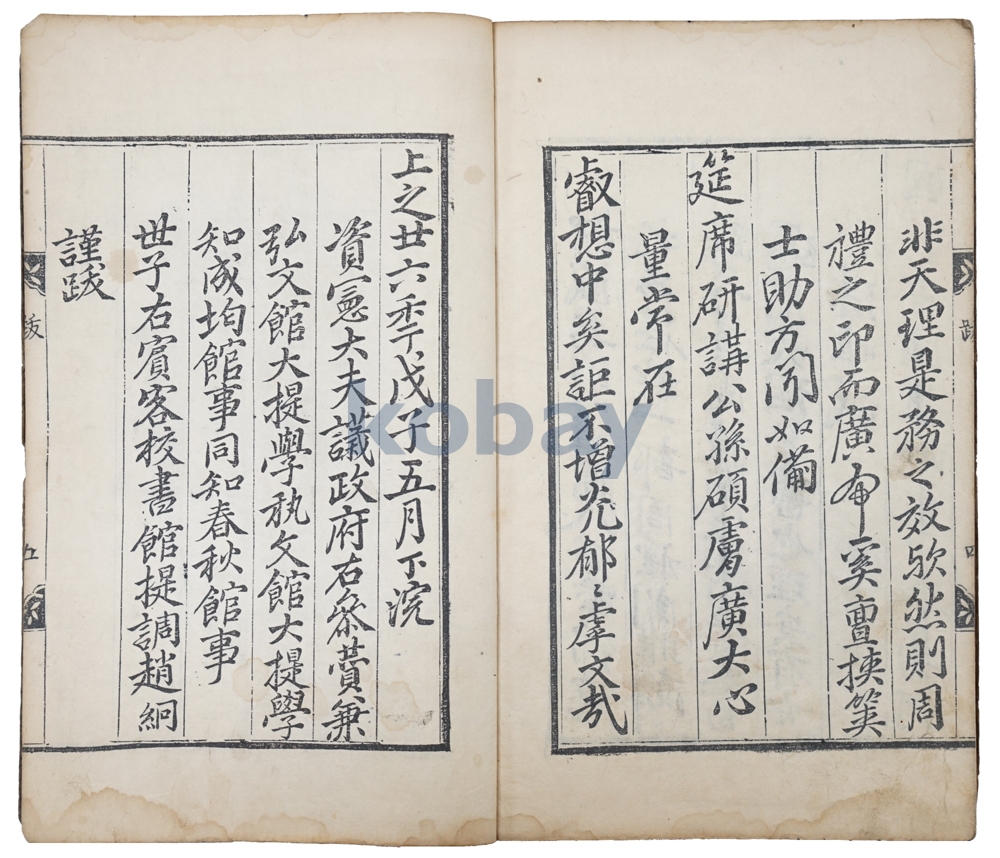 非天理是務之效歟然則周
禮之印而廣布奚亶挾筴
士助方聞如備
筵席研講公孫碩膚廣大心
量常在
叡想中矣詎不增光郁〻虖文哉
跋
四
上之廿六秊戊子五月下浣
資憲大夫議政府右叅贊兼
弘文館大提學執文館大提學
知成均館事同知春秋館事
世子右賓客校書館提調趙絅
謹跋
跋
五
kobay